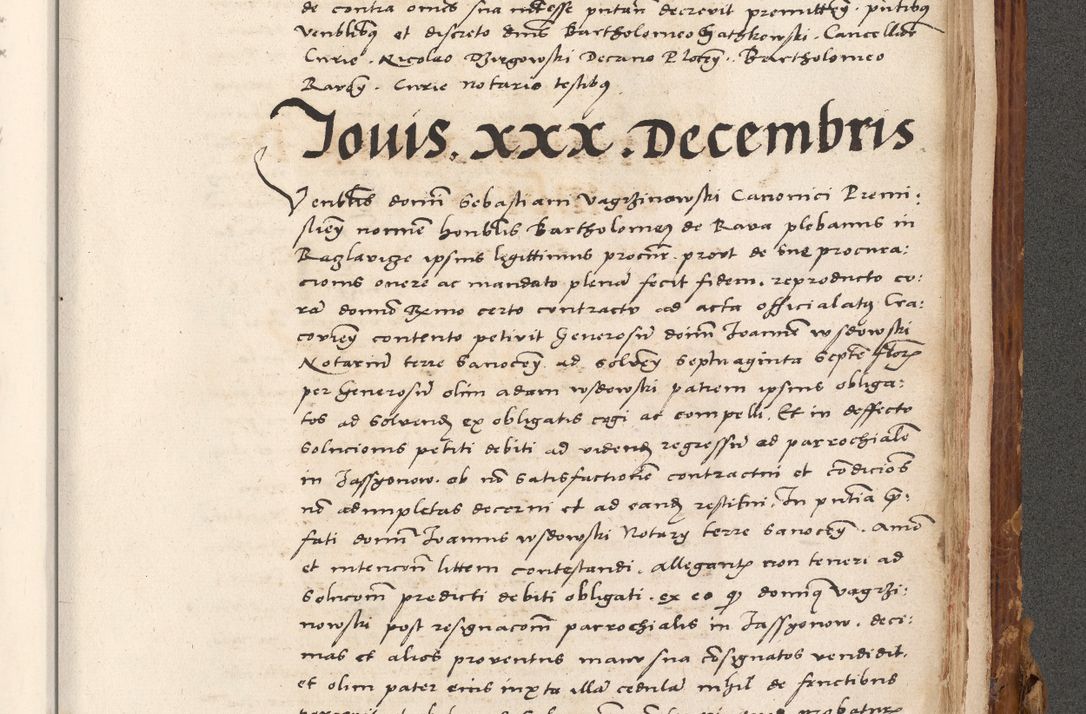 de contra omnes sua interesse putan decrevit premitten. putibus
venlibus et discreto dnis Bartholomeo Gathkowski. Cancellar
Curie. Nicolao Dzirgowski Decano Plocen. Bartholomeo
Curie notario testibus
Iouis. xxx. Decembris
Venblis domni Sebastiani Vagrzinowski Canonici Premi:
slien nomine honblis Bartholomeus de Rava plebanus in
Raczlavicze ipsius legittimus procur. prout de sue procura:
cionis onere ac mandato plena fecit fidem. reproducto co:
ra domno certo contractu ad acta officialatus Cra:
covien contento petivit Generosu domn Ioanne wsdowski
Notariu terre Sanocen. ad solven septuaginta septe floren
per Generosu olim adam wsdowski patrem ipsius obliga:
tos ad solvend ex obligatis cogi ac compelli. Et in deffectu
solucionis petiti debiti ad vidend regressu ad parrochiale
in Iassyonow. ob no satisfactione contractui et condicios
no adimpletas decerni et ad eand restitui. In pntia pre:
fati domni Ioannis wsdowski Notary terre Sanocen. Animo
et intencon littem contestandi. Allegantis non teneri ad
solucom predicti debiti obligati. ex eo q dominus vagrzi:
nowski post resignacom parrochialis in Iassyonow. deci:
mas et alios proventus manu sua consignatos vendidit.
et olim pater eius iuxta illa cedula nihil de fructibus